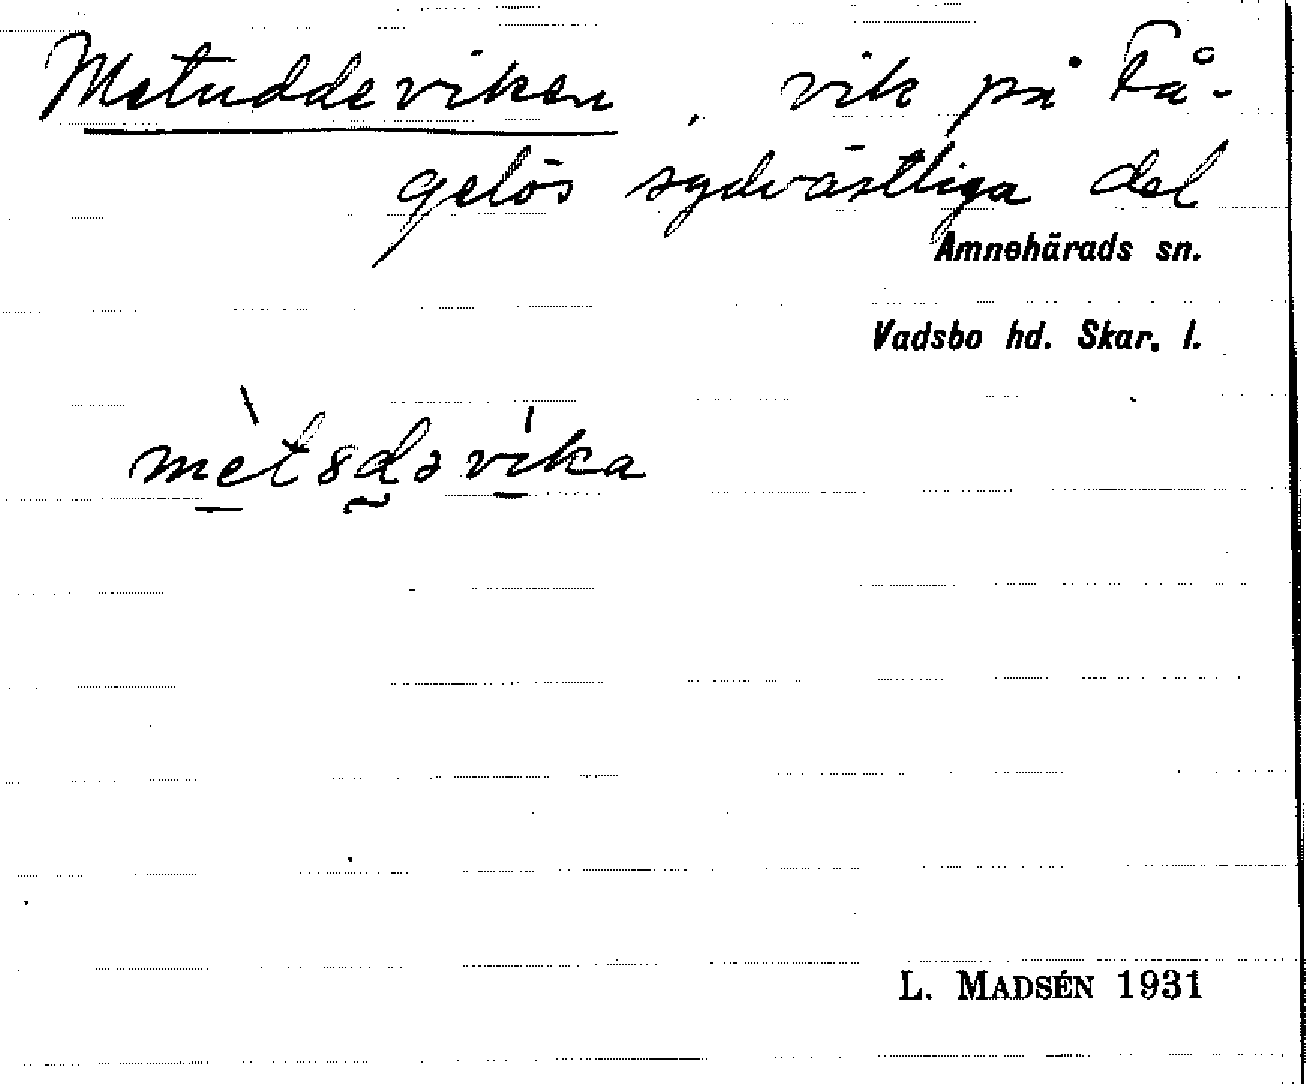 Metuddeviken, vik på Få-
gelös sydvästliga del
Amnehärads sn.
Vadsbo hd. Skar. l.
L. MADSÉN 1931